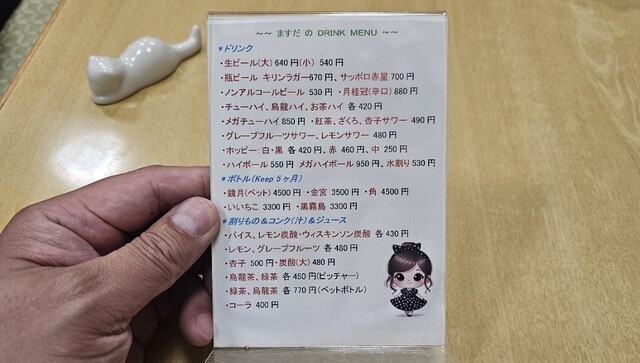 ～～ ますだ の DRINK MENU ～～
*ドリンク
・生ビール(大) 640 円(小) 540円
・瓶ビール キリンラガー670円、サッポロ赤星 700 円
・ノンアルコールビール 530 円 ・月桂冠(辛口) 880 円
・チューハイ、烏龍ハイ、お茶ハイ 各 420 円
・メガチューハイ 850 円 ・紅茶、ざくろ、杏子サワー 490 円
・グレープフルーツサワー、レモンサワー 480 円
・ホッピー：白・黒 各 420 円、赤 460 円、中 250 円
・ハイボール 550 円 メガハイボール 950 円、水割り 530 円
*ボトル(Keep 5ヶ月)
・鏡月(ペット) 4500 円 ・金宮 3500 円 ・角 4500 円
・いいちこ 3300 円 ・黒霧島 3300 円
*割りもの＆コンク(汁)＆ジュース
・バイス、レモン炭酸・ウィスキンソン炭酸 各 430 円
・レモン、グレープフルーツ 各 480 円
・杏子 500 円・炭酸(大) 480 円
・烏龍茶、緑茶 各 450 円(ピッチャー)
・緑茶、烏龍茶 各 770 円(ペットボトル)
・コーラ 400 円